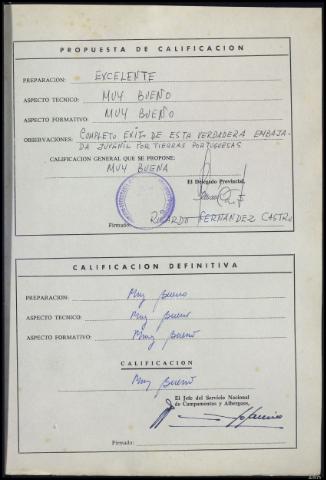 PROPUESTA DE CALIFICACIÓN
PREPARACIÓN: EXCELENTE
ASPECTO TECNICO: MUY BUEÑO
ASPECTO FORMATIVO: MUY BUEÑO
OBSERVACIONES: COMPLETO EXITO DE ESTA VERDADERA EMBAJA-
DA JUVENIL POR TIERRAS PORTUGUESAS
CALIFICACIÓN GENERAL QUE SE PROPONE:
MUY BUENA
El Delegado Provincial,
Firmado: RICARDO FERNANDEZ CASTRO
CALIFICACIÓN DEFINITIVA
PREPARACIÓN: Muy bueno
ASPECTO TECNICO: Muy bueno
ASPECTO FORMATIVO: Muy bueno
CALIFICACION
Muy bueno
El Jefe del Servicio Nacional
de Campamentos y Albergues,
Firmado: